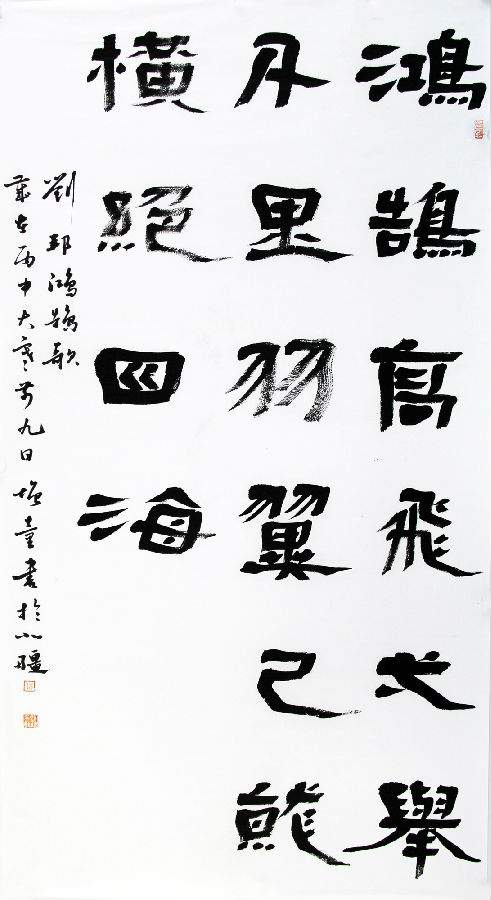 鴻鵠高飛弌舉
千里羽翼已就
橫絕四海
劉邦鴻鵠歌
歲在丙申大寒前九日 童書於北疆